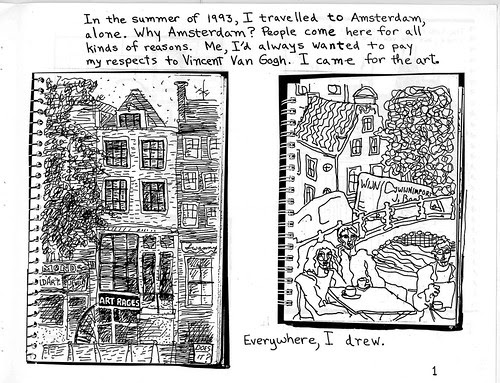 In the summer of 1993, I travelled to Amsterdam,
alone. Why Amsterdam? People come here for all
kinds of reasons. Me, I'd always wanted to pay
my respects to Vincent Van Gogh. I came for the art.
ART RAGES
DOES
IT?
WIJN
Everywhere, I drew.
1